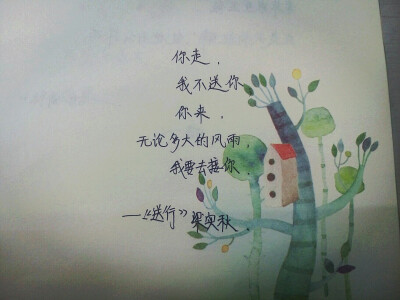 你走，
我不送你
你来，
无论多大的风雨，
我要去接你．
—“送行”梁实秋．